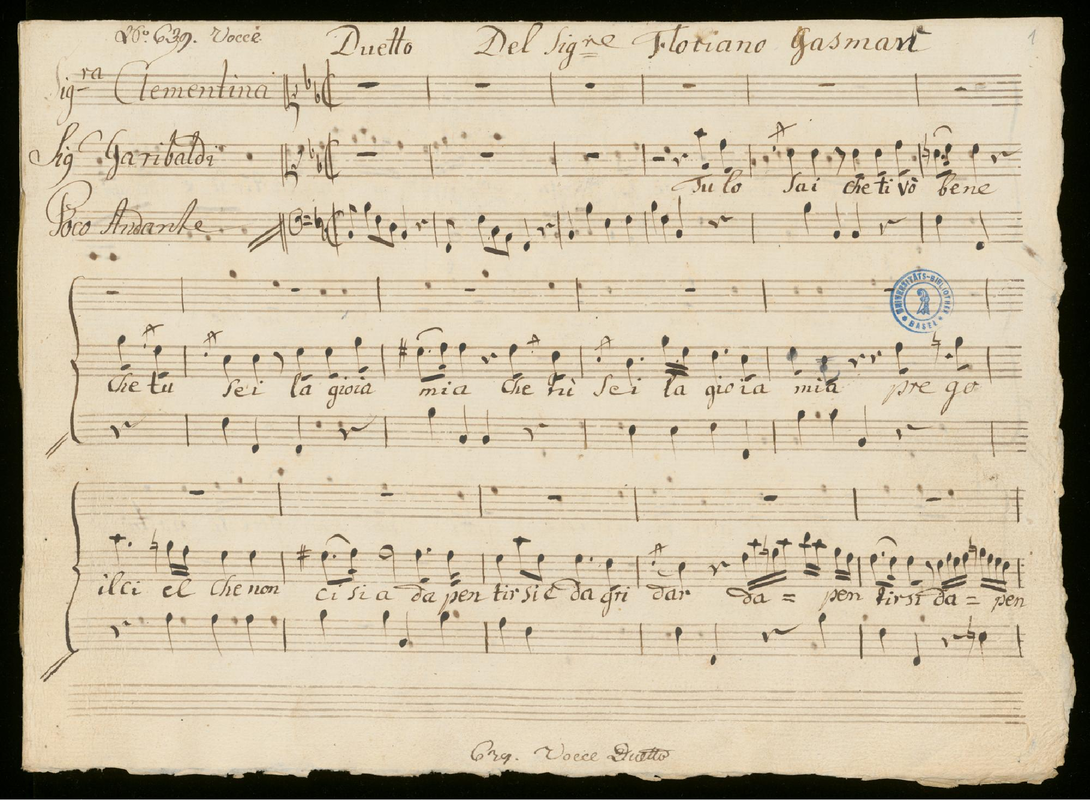 No. 639. Vocce
Duetto Del Sigre Floriano Gasman
1
Sigra Clementina
Sig Garibaldi
Tu lo sai che ti vò bene
Poco Andante
UNIVERSITÄTS-BIBLIOTHEK BASEL
che tu sei la gioia mia che tù sei la gioia mia prego
il ciel che non ci sia da pentirsi e da gri dar da = pen tirsi da = pen
639. Vocce Duetto